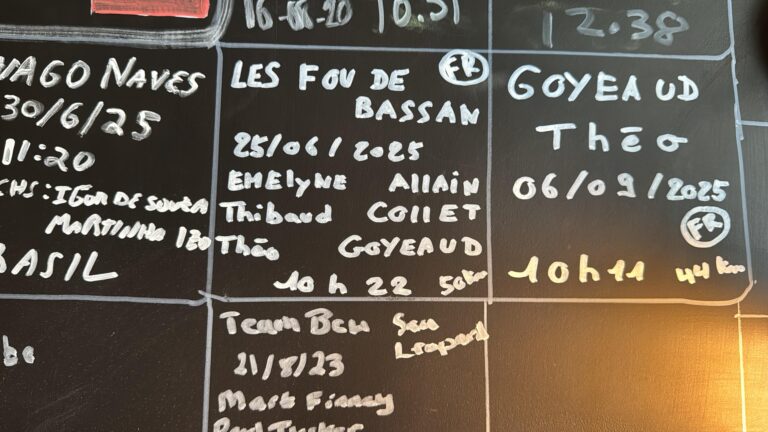 16-08-20 10.51
12.38
NAVES
30/6/25
11:20
IGOR DE SOUZA
MARTINHO
LES FOU DE FR
BASSAN
25/06/2025
EMElyNE ALLAiN
Thibaud COLLET
Théo GOYEAUD
10 h 22 50km
GOYEAUD
Théo
06/09/2025
FR
10h11 44 km
Team Bcw Sea
Leopard
21/8/23
Mark Finney